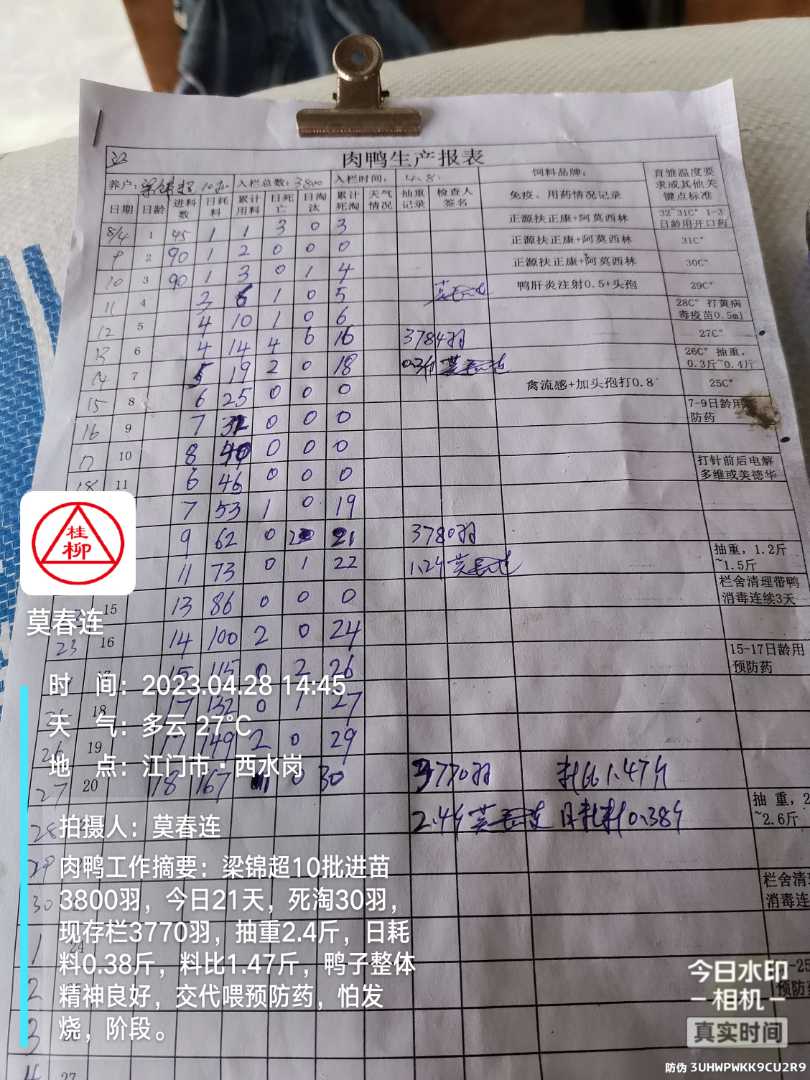 肉鸭生产报表
养户: 梁锦超 10批 入栏总数: 3800 入栏时间: 4.8. 饲料品牌: 育雏温度要求或其他关键点标准
日期 日龄 进料数 日耗料 累计用料 日死亡 日淘汰 累计死淘 天气情况 抽重记录 检查人签名 免疫、用药情况记录
8/4 1 45 1 1 3 0 3 正源扶正康+阿莫西林 32~31C° 1-3日龄用开口药
9 2 90 1 2 0 0 0 正源扶正康+阿莫西林 31C°
10 3 90 1 3 0 1 4 正源扶正康+阿莫西林 30C°
11 4 1 0 5 莫春连 鸭肝炎注射0.5+头孢 29C°
12 5 4 10 1 0 6 28C° 打黄病毒疫苗0.5ml
13 6 4 14 4 6 16 3784羽 27C°
14 7 5 19 2 0 18 莫春连 26C° 抽重,0.3斤~0.4斤
15 8 6 25 0 0 0 禽流感+加头孢打0.8 25C°
16 9 7 32 0 0 0 7-9日龄用 防药
17 10 8 40 0 0 0
18 11 6 46 0 0 0 打针前后电解多维或美德华
7 53 1 0 19
9 62 0 21 3780羽
11 73 0 1 22 1.2斤 莫春连 抽重, 1.2斤~1.5斤
15 13 86 0 0 0 栏舍清理带鸭消毒连续3天
23 16 14 100 2 0 24
15 115 0 2 26 15-17日龄用预防药
18 17 132 0 1 27
26 19 17 149 2 0 29
27 20 18 167 1 0 30 3770羽 料比1.47斤
28 2.4斤 莫春连 日耗料0.38斤 抽重, 2 ~2.6斤
29 栏舍清 消毒连
30
1
2 预防
3
4 27
桂柳
莫春连
时 间: 2023.04.28 14:45
天 气: 多云 27℃
地 点: 江门市·西水岗
拍摄人: 莫春连
肉鸭工作摘要: 梁锦超10批进苗
3800羽，今日21天，死淘30羽，
现存栏3770羽，抽重2.4斤，日耗
料0.38斤，料比1.47斤，鸭子整体
精神良好，交代喂预防药，怕发
烧，阶段。
今日水印
相机
真实时间
防伪 3UHWPWKK9CU2R9